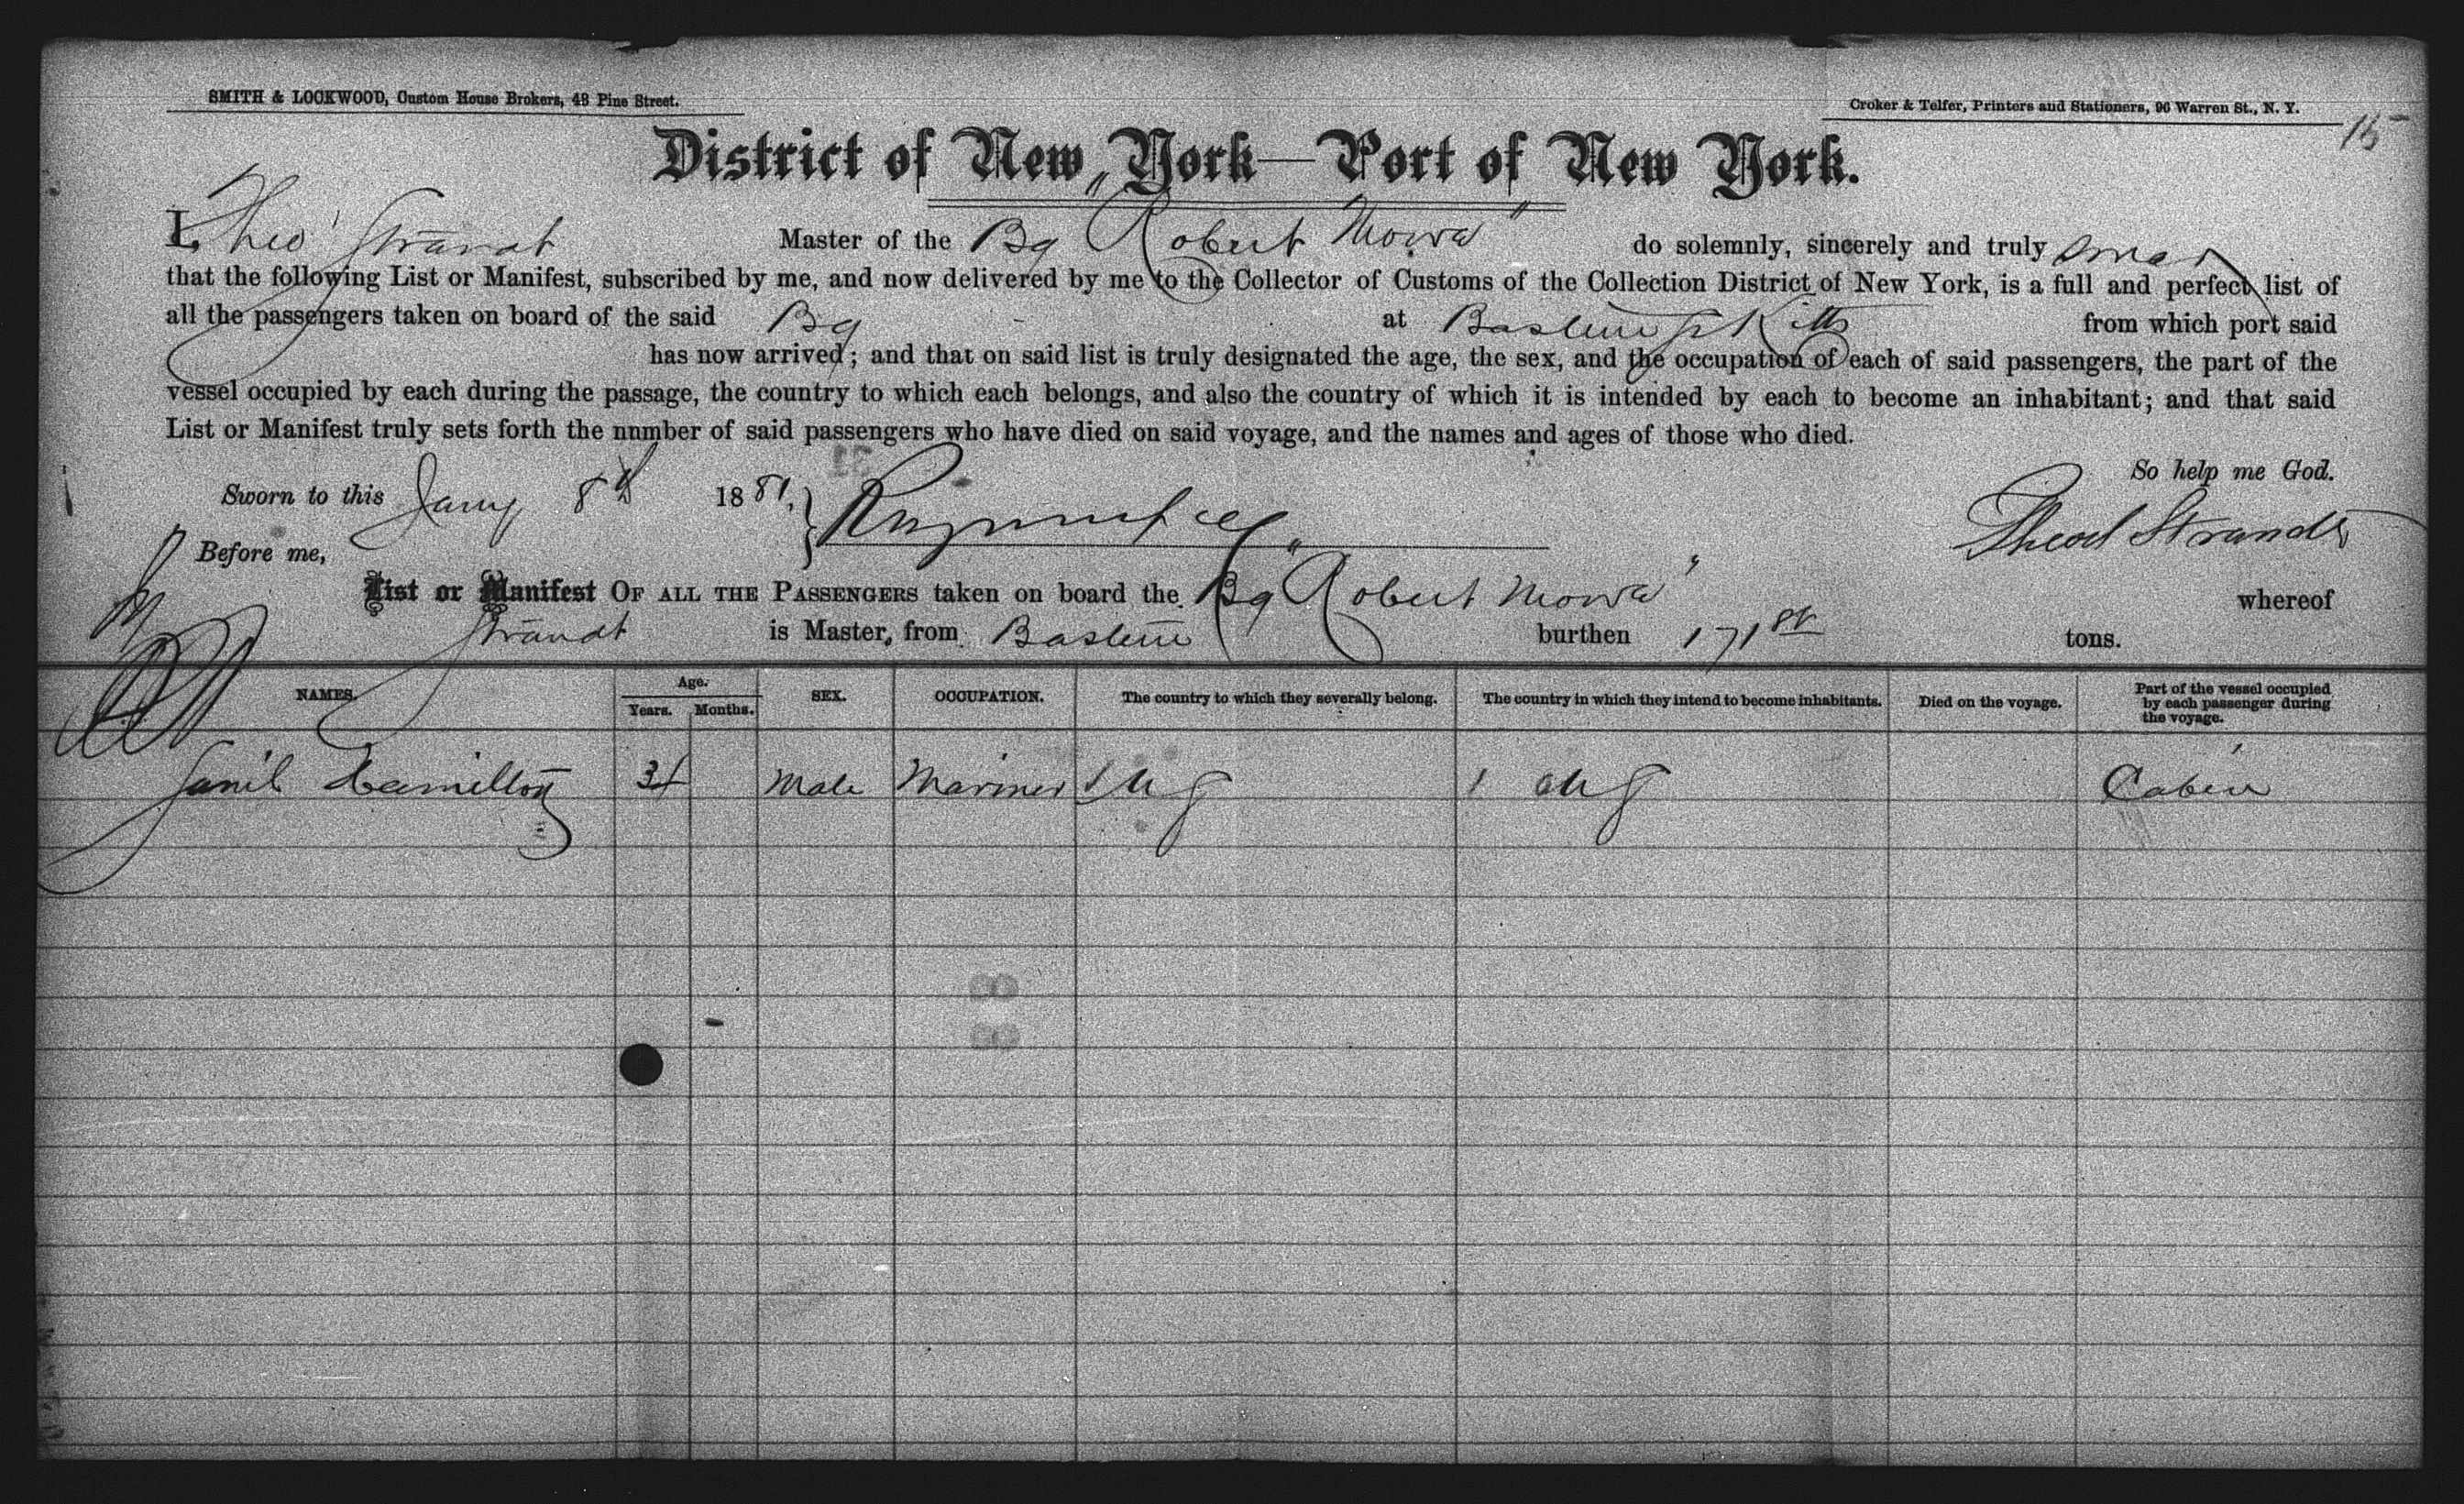 SMITH & LOCKWOOD, Custom House Brokers, 48 Pine Street.
Croker & Telfer, Printers and Stationers, 96 Warren St., N. Y.
15
District of New York—Port of New York.
I, Theo Strandt Master of the Bg "Robert Mowe" do solemnly, sincerely and truly swear
that the following List or Manifest, subscribed by me, and now delivered by me to the Collector of Customs of the Collection District of New York, is a full and perfect list of
all the passengers taken on board of the said Bg at Basseterre St Kitts from which port said
has now arrived; and that on said list is truly designated the age, the sex, and the occupation of each of said passengers, the part of the
vessel occupied by each during the passage, the country to which each belongs, and also the country of which it is intended by each to become an inhabitant; and that said
List or Manifest truly sets forth the nnmber of said passengers who have died on said voyage, and the names and ages of those who died.
So help me God.
Sworn to this Jany 8th 1881.
Theod Strandt
Before me,
List or Manifest OF ALL THE PASSENGERS taken on board the Bg "Robert Mowe" whereof
Strandt is Master, from Basterre burthen 171 tons.
NAMES. Age. Years. Months. SEX. OCCUPATION. The country to which they severally belong. The country in which they intend to become inhabitants. Died on the voyage. Part of the vessel occupied by each passenger during the voyage.
Hamilton Male Mariner Cabin